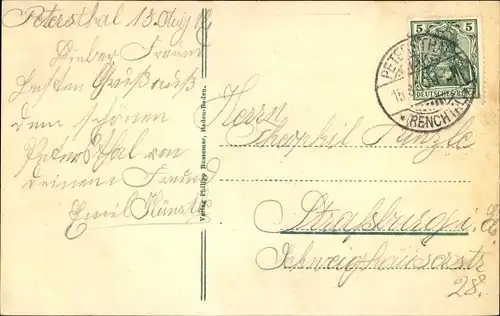 Petersthal 13. Aug.
Lieber Freund
Besten Gruß aus
dem schönen
Petersthal von
deinem Freund
Emil
Verlag Philipp Bussemer, Baden-Baden.
Herrn
Straßburg i. Els.
Schweighäuserstr
28.
5 5
DEUTSCHES REICH
PETERSTHAL
*(RENCHTHAL)